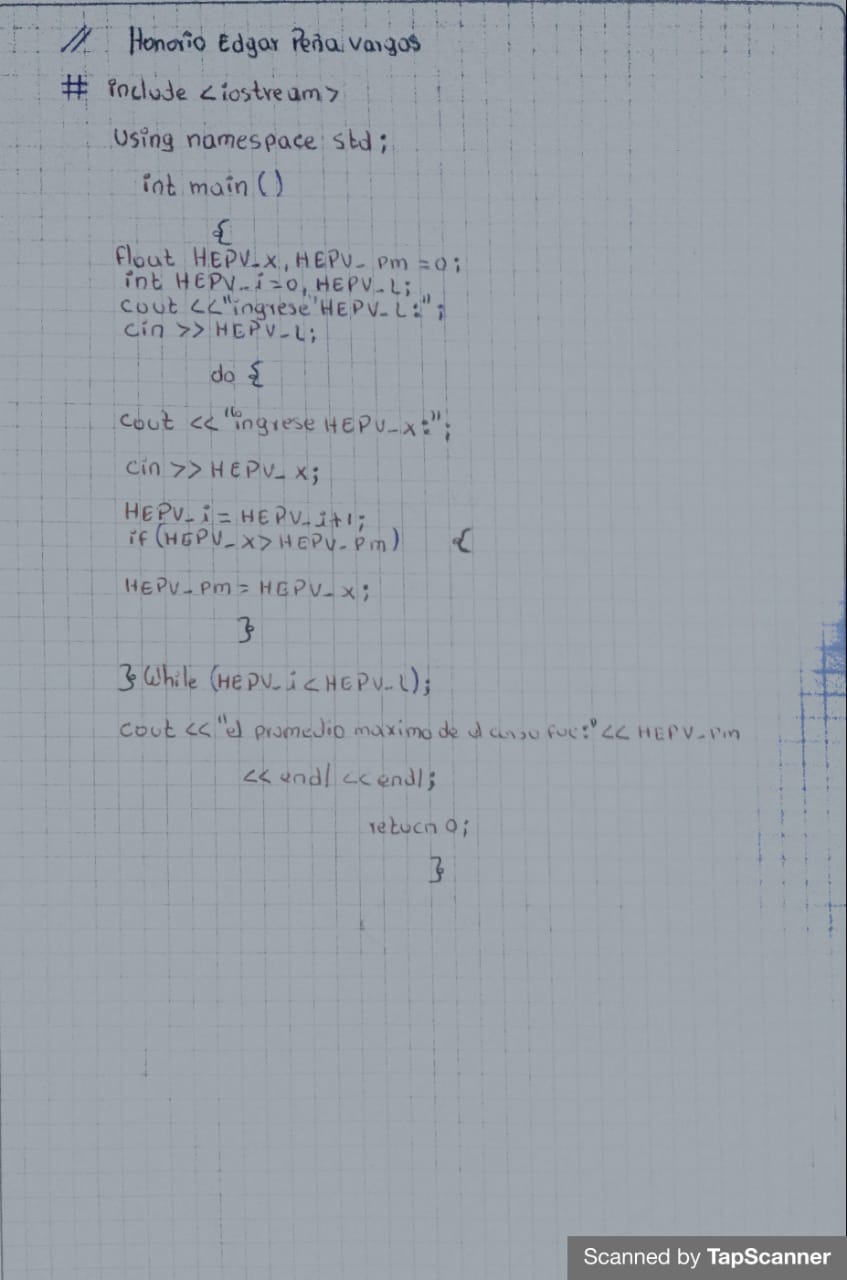 // Honorio Edgar Peña Vargas
# include <iostream>
Using namespace std;
int main ()
{
float HEPV_x, HEPV_ pm = 0;
int HEPV_i=0, HEPV_L;
cout <<"ingrese"HEPV_L:";
cin >> HEPV_L;
do {
cout <<"ingrese HEPV_x:";
cin >> HEPV_x;
HEPV_i = HEPV_i+1;
if (HEPV_x> HEPV_pm) {
HEPV_pm = HEPV_x;
}
} While (HEPV_i < HEPV_L);
cout <<"el promedio maximo de el curso fue:"<< HEPV_pm
<< endl << endl;
return 0;
}
Scanned by TapScanner